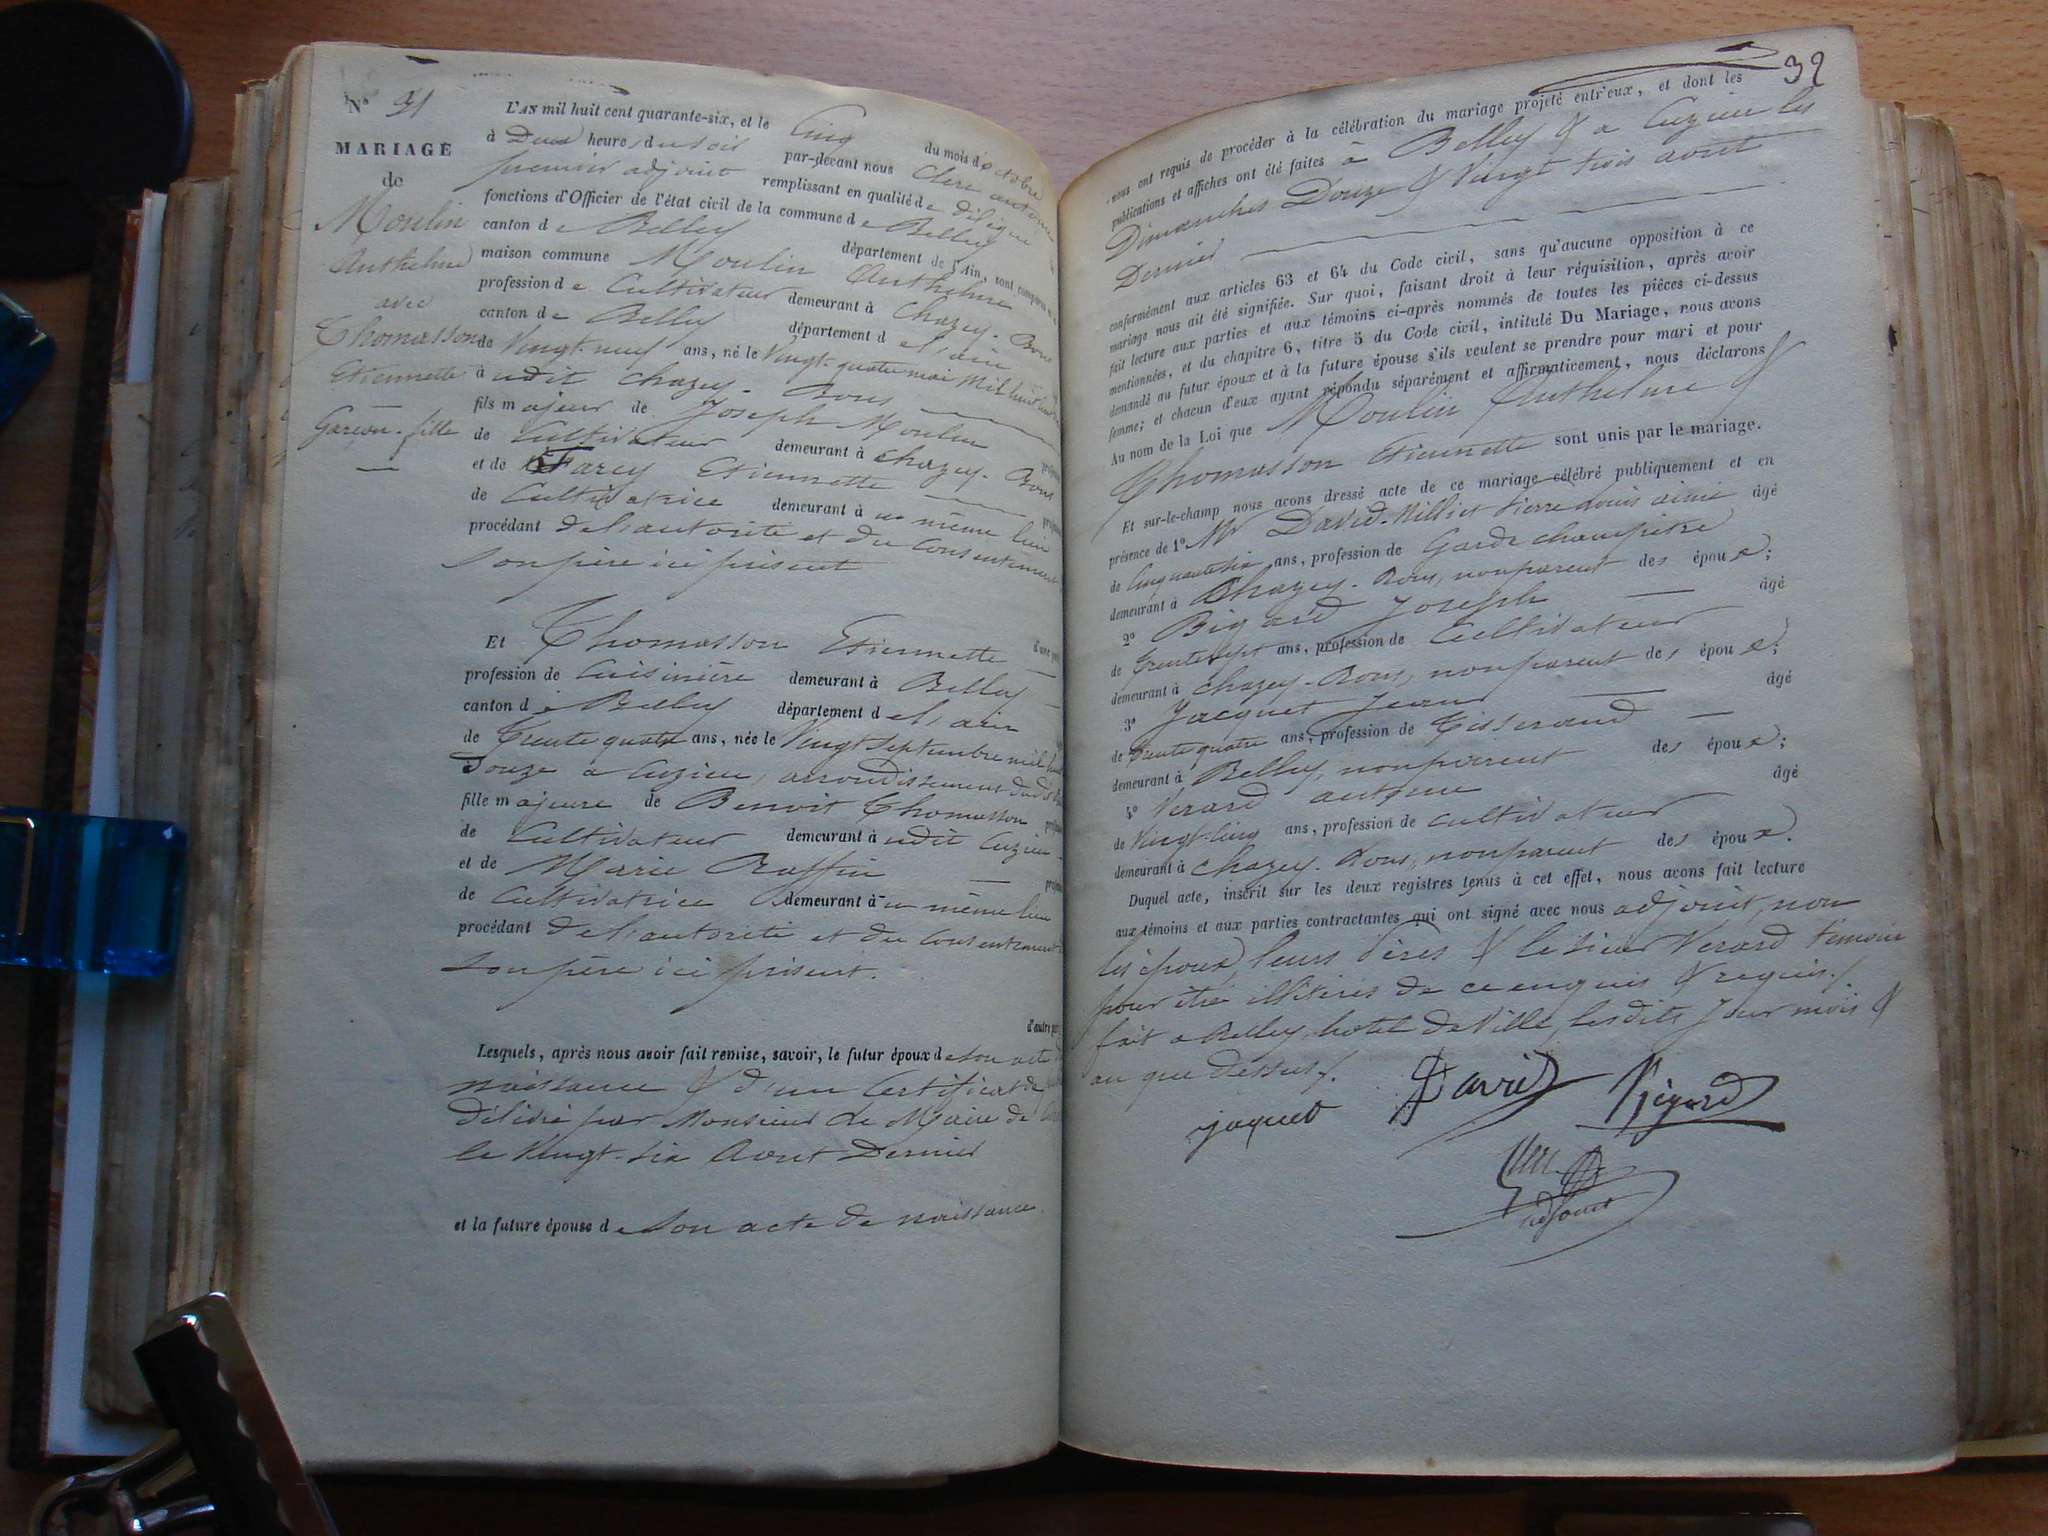 N° 31
MARIAGE
de
Moulin
Anthelme
avec
Thomasson
Etiennette
Garçon - fille
L'AN mil huit cent quarante-six, et le Cinq du mois d'octobre
à Deux heures du soir par-devant nous Clerc antoine
premier adjoint remplissant en qualité de délégué
fonctions d'Officier de l'état civil de la commune de Belley
canton de Belley département de l'Ain, sont comparus
maison commune Moulin Anthelme
profession de Cultivateur demeurant à Chazey-Bons
canton de Belley département de l'ain
de Vingt-neuf ans, né le Vingt-quatre mai mil huit cent
à udit Chazey-Bons
fils majeur de Joseph Moulin
de Cultivateur demeurant à Chazey-Bons
et de Farcy Etiennette
de Cultivatrice demeurant à u même lieu
procédant de l'autorité et du Consentement
Son père ici présent
d'une part
Et Thomasson Etiennette
profession de Cuisinière demeurant à Belley
canton de Belley département de l'ain
de Trente quatre ans, née le Vingt Septembre mil huit
Douze à Cuzieu, arrondissement dudit
fille majeure de Benoit Thomasson
de Cultivateur demeurant à udit Cuzieu
et de Marie Raffin
de Cultivatrice demeurant à u même lieu
procédant de l'autorité et du Consentement
Son père ici présent.
d'autre part
Lesquels, après nous avoir fait remise, savoir, le futur époux de Son acte
naissance & d'un Certificat de
Délivré par Monsieur Le Maire de
le Vingt-Six Aout Dernier
et la future épouse de Son acte de naissance.
32
nous ont requis de procéder à la célébration du mariage projeté entr'eux, et dont les
publications et affiches ont été faites à Belley & a Cuzieu les
Dimanches Douze & Vingt trois aout
Dernier
conformément aux articles 63 et 64 du Code civil, sans qu'aucune opposition à ce
mariage nous ait été signifiée. Sur quoi, faisant droit à leur réquisition, après avoir
fait lecture aux parties et aux témoins ci-après nommés de toutes les pièces ci-dessus
mentionnées, et du chapitre 6, titre 5 du Code civil, intitulé Du Mariage, nous avons
demandé au futur époux et à la future épouse s'ils veulent se prendre pour mari et pour
femme; et chacun d'eux ayant répondu séparément et affirmativement, nous déclarons
Au nom de la Loi que Moulin Anthelme &
Thomasson Etiennette sont unis par le mariage.
Et sur-le-champ nous avons dressé acte de ce mariage célébré publiquement et en
présence de 1° Mr David-Nilliet Pierre Louis aimé âgé
de Cinquante six ans, profession de Garde champêtre
demeurant à Chazey-Bons, non parent des époux;
2° Bigard Joseph âgé
de Trente sept ans, profession de Cultivateur
demeurant à Chazey-Bons, non parent des époux;
3° Jacquet Jean âgé
de Trente quatre ans, profession de Tisserand
demeurant à Belley, non parent des époux;
4° Verard antoine âgé
de Vingt-Cinq ans, profession de Cultivateur
demeurant à Chazey-Bons, non parent des époux.
Duquel acte, inscrit sur les deux registres tenus à cet effet, nous avons fait lecture
aux témoins et aux parties contractantes qui ont signé avec nous adjoint, non
les époux, leurs Pères & le Sieur Verard témoin
pour être illitérés de ce enquis & requis./.
fait à Belley, hotel de Ville, lesdits jour mois &
an que Dessus/.
jaquet David Bigard